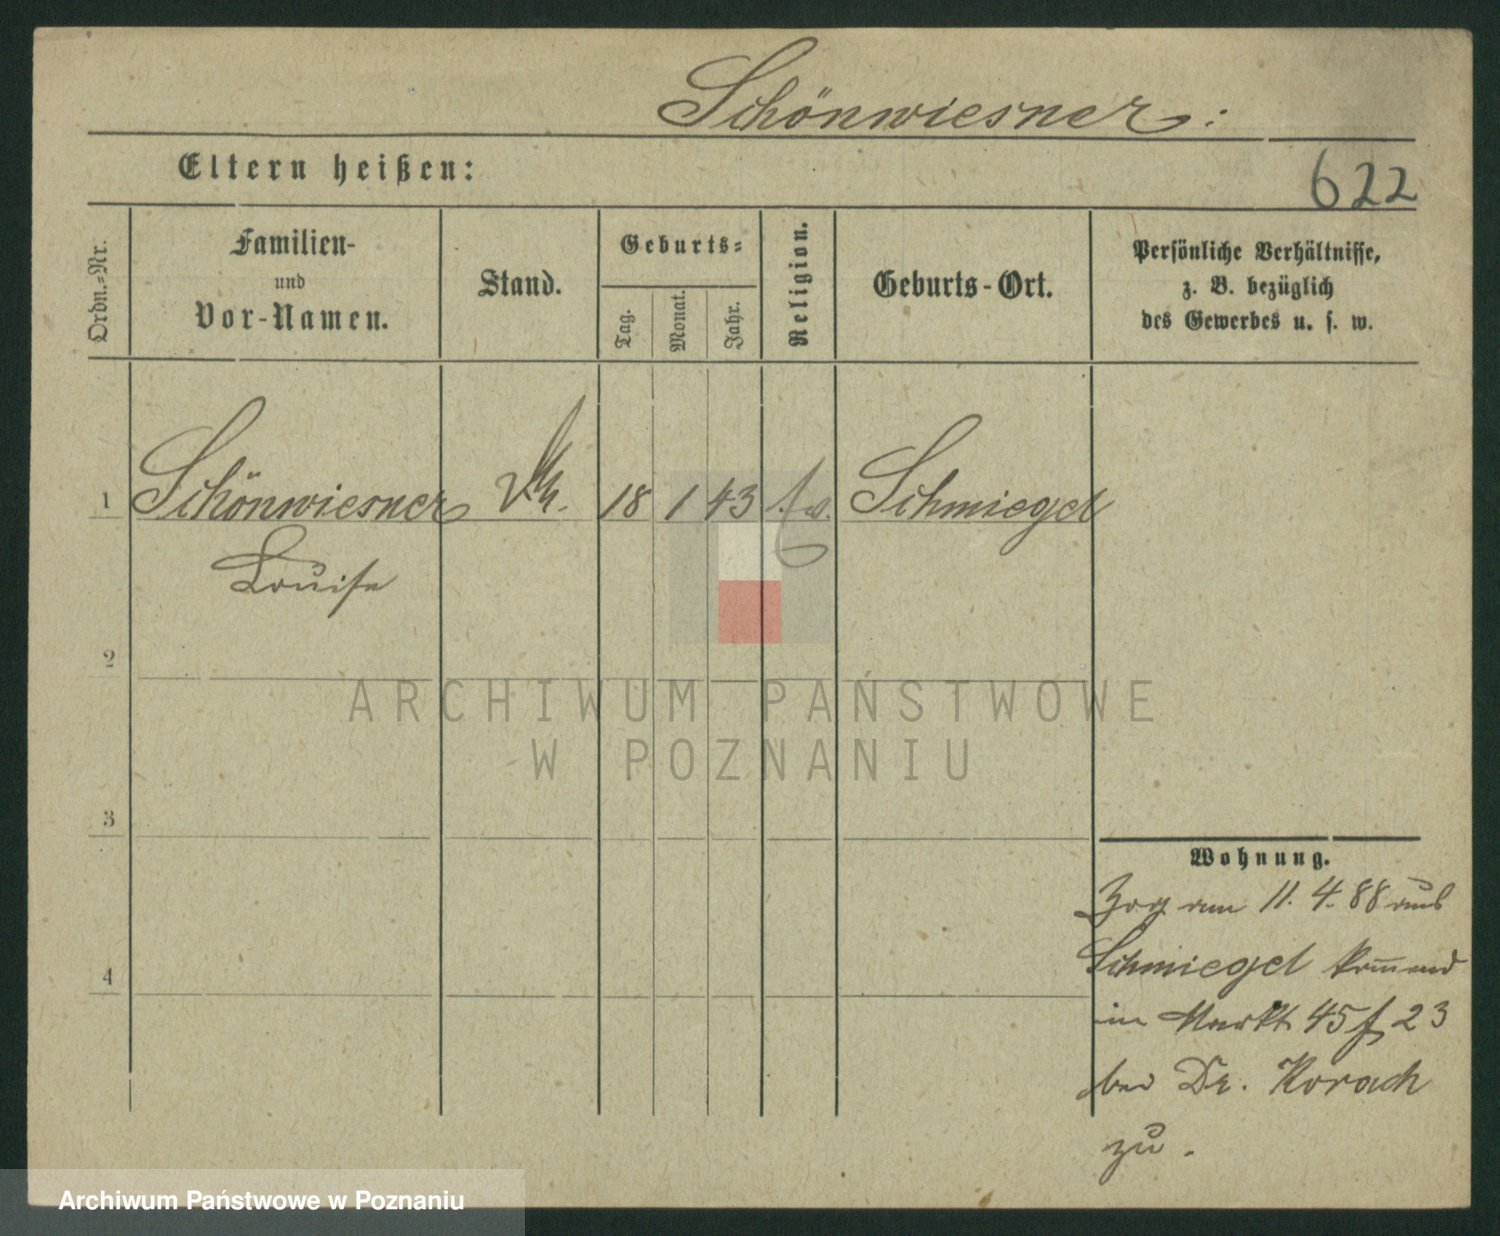 Schönwiesner:
Eltern heißen:
622
Ordn.-Nr.
Familien-
und
Vor-Namen.
Stand.
Geburts-
Tag.
Monat.
Jahr.
Religion.
Geburts-Ort.
Persönliche Verhältnisse,
z. B. bezüglich
des Gewerbes u. s. w.
1 Schönwiesner 18 1 43 Schmiegel
Louise
2
3
4
ARCHIWUM PAŃSTWOWE
W POZNANIU
Wohnung.
Zog am 11. 4. 88 aus
Schmiegel kom̅end
in Markt 45 f 23
bei Dr. Korach
zu.
Archiwum Państwowe w Poznaniu